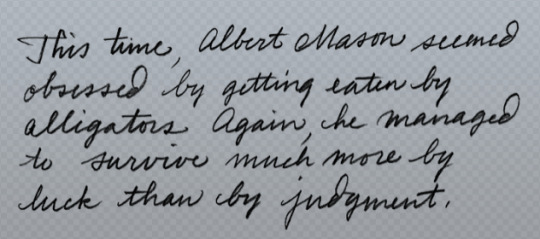 This time, Albert Mason seemed
obsessed by getting eaten by
alligators. Again, he managed
to survive much more by
luck than by judgment.